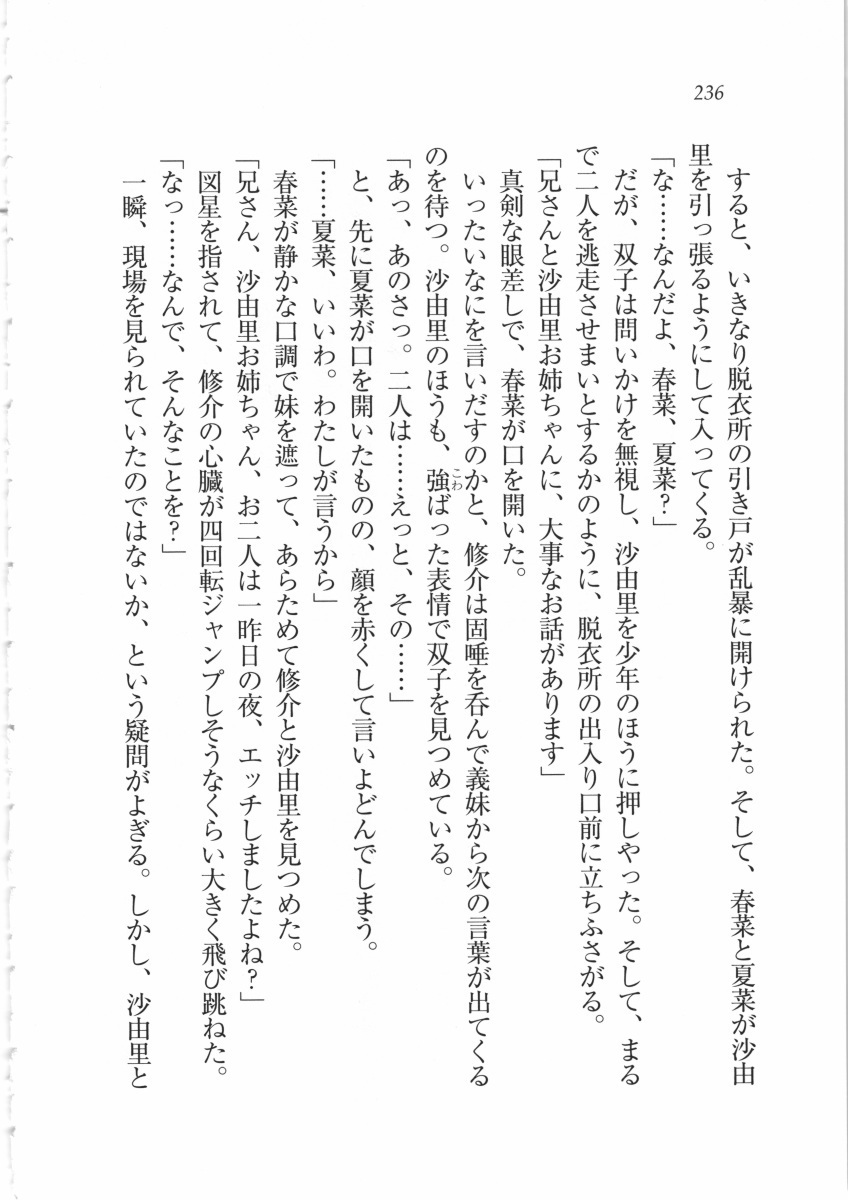 236
すると、いきなり脱衣所の引き戸が乱暴に開けられた。そして、春菜と夏菜が沙由
里を引っ張るようにして入ってくる。
「な……なんだよ、春菜、夏菜？」
だが、双子は問いかけを無視し、沙由里を少年のほうに押しやった。そして、まる
で二人を逃走させまいとするかのように、脱衣所の出入り口前に立ちふさがる。
「兄さんと沙由里お姉ちゃんに、大事なお話があります」
真剣な眼差しで、春菜が口を開いた。
いったいなにを言いだすのかと、修介は固唾を呑んで義妹から次の言葉が出てくる
のを待つ。沙由里のほうも、強こわばった表情で双子を見つめている。
「あっ、あのさっ。二人は……えっと、その……」
と、先に夏菜が口を開いたものの、顔を赤くして言いよどんでしまう。
「……夏菜、いいわ。わたしが言うから」
春菜が静かな口調で妹を遮って、あらためて修介と沙由里を見つめた。
「兄さん、沙由里お姉ちゃん、お二人は一昨日の夜、エッチしましたよね？」
図星を指されて、修介の心臓が四回転ジャンプしそうなくらい大きく飛び跳ねた。
「なっ……なんで、そんなことを？」
一瞬、現場を見られていたのではないか、という疑問がよぎる。しかし、沙由里と